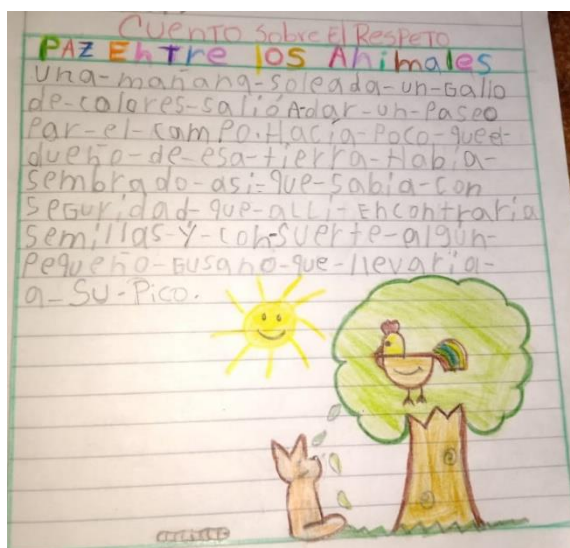 Cuento Sobre El Respeto
PAZ Entre los Animales
Una-mañana-soleada-un-Gallo
de-colores-salió A-dar-un-Paseo
Par-el-camPo.Hacía-Poco-quee-
dueño-de-esa-tierra-Habia-
sembrado-asi-que-sabia-con
seguridad-que-alli-Encontraría
semillas-Y-con-suerte-algún-
Pequeño-Gusano-que-llevaría-
a-Su-Pico.